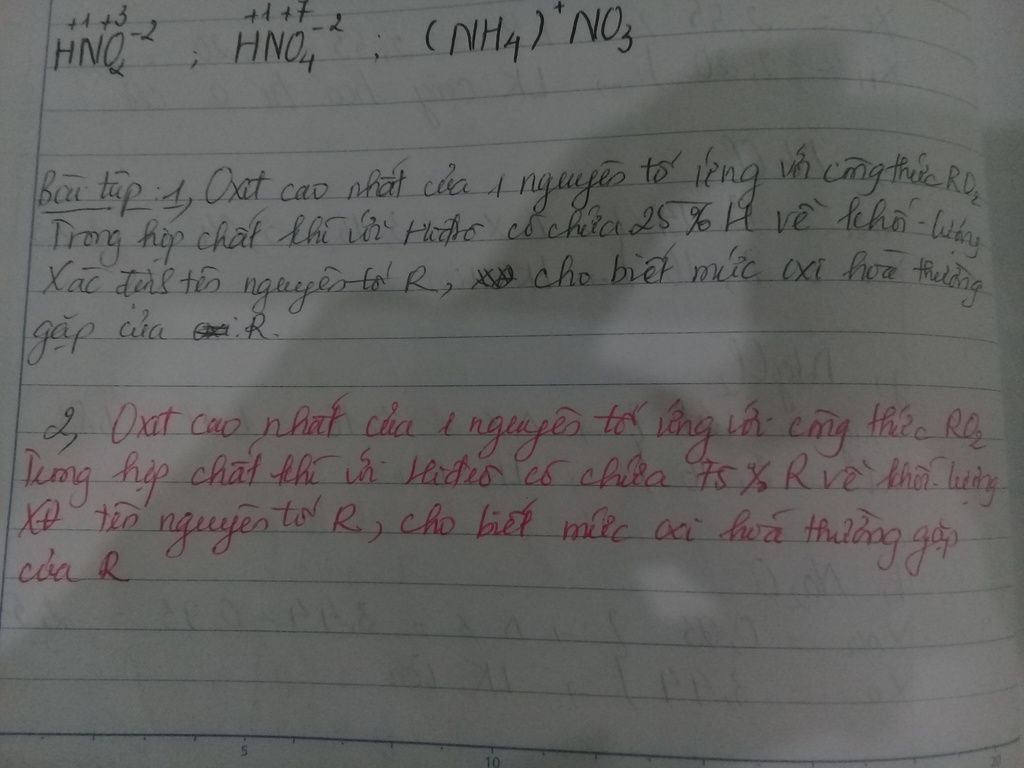 +1 +3 +1 +7
HNO₂⁻² ; HNO₄⁻² ; (NH₄)⁺NO₃
Bài tập : 1, Oxit cao nhất của 1 nguyên tố ứng với công thức RO₂
Trong hợp chất khí với Hiđrô có chứa 25 % H về khối lượng
Xác định tên nguyên tố R, cho biết mức oxi hoá thường
gặp của R.
2, Oxit cao nhất của 1 nguyên tố ứng với công thức RO₂
Trong hợp chất khí với Hiđrô có chứa 75 % R về khối lượng
XĐ tên nguyên tố R, cho biết mức oxi hoá thường gặp
của R
5 10 20